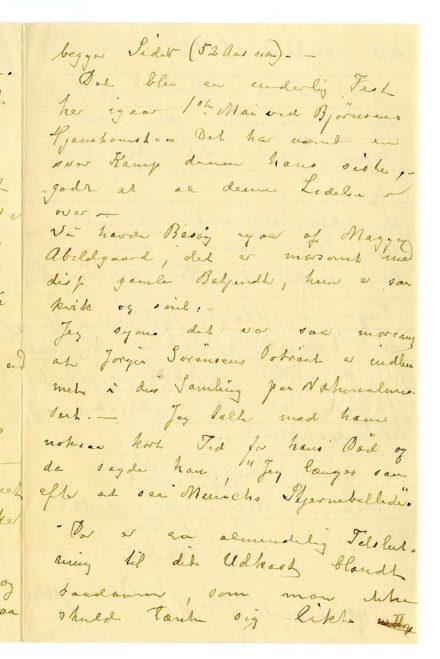 begges Sider (52 Aar siden). –
Det blev en underlig Fest
her igaar 1ste Mai ved Bjørnsons
Hjemkomst. – Det har været en
svær Kamp denne hans sidste, –
godt at al denne Lidelse er
over –
Vi havde Besøg igaar af Maggy
Abildgaard, det er morsomt med
disse gamle Bekjendte, hun er saa
kvik og snil, –
Jeg synes det var saa morsomt
at Jørgen Sørensens Portræt er indlem
met i din Samling paa Nationalmu-
seet. – Jeg talte med ham
noksaa kort Tid før hans Død og
da sagde han, "Jeg længes saa
efter at see Munchs Stjernebillede".
Der er en almindelig Tilslut-
ning til dit Udkast blandt
saadanne, som man ikke
skulde tænke sig likte